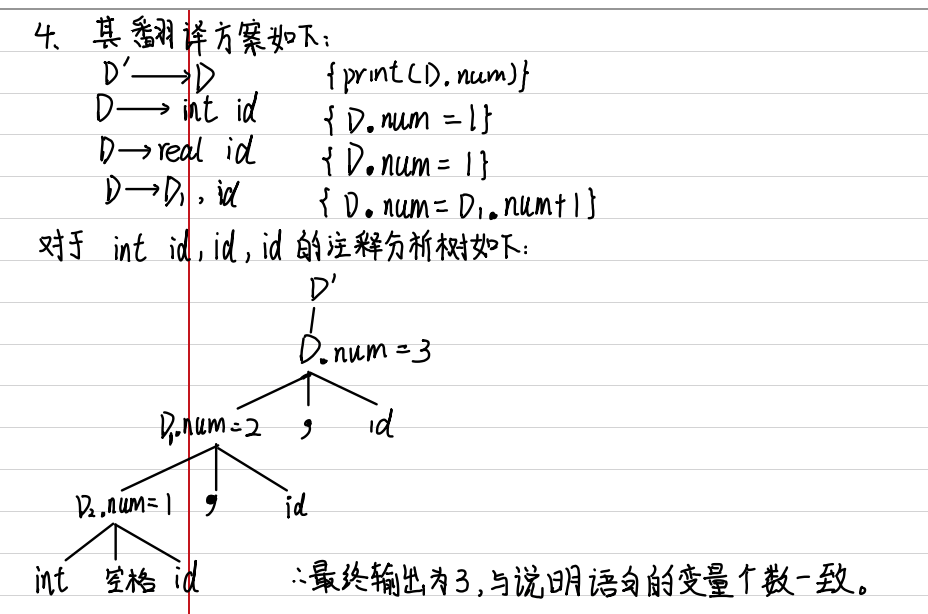 4、某翻译方案如下:
D' → D {print(D.num)}
D → int id {D.num = 1}
D → real id {D.num = 1}
D → D₁, id {D.num = D₁.num+1}
对于 int id, id, id 的注释分析树如下:
D'
D.num = 3
D₁.num = 2 , id
D₂.num = 1 , id
int 空格 id ∴最终输出为3,与说明语句的变量个数一致。